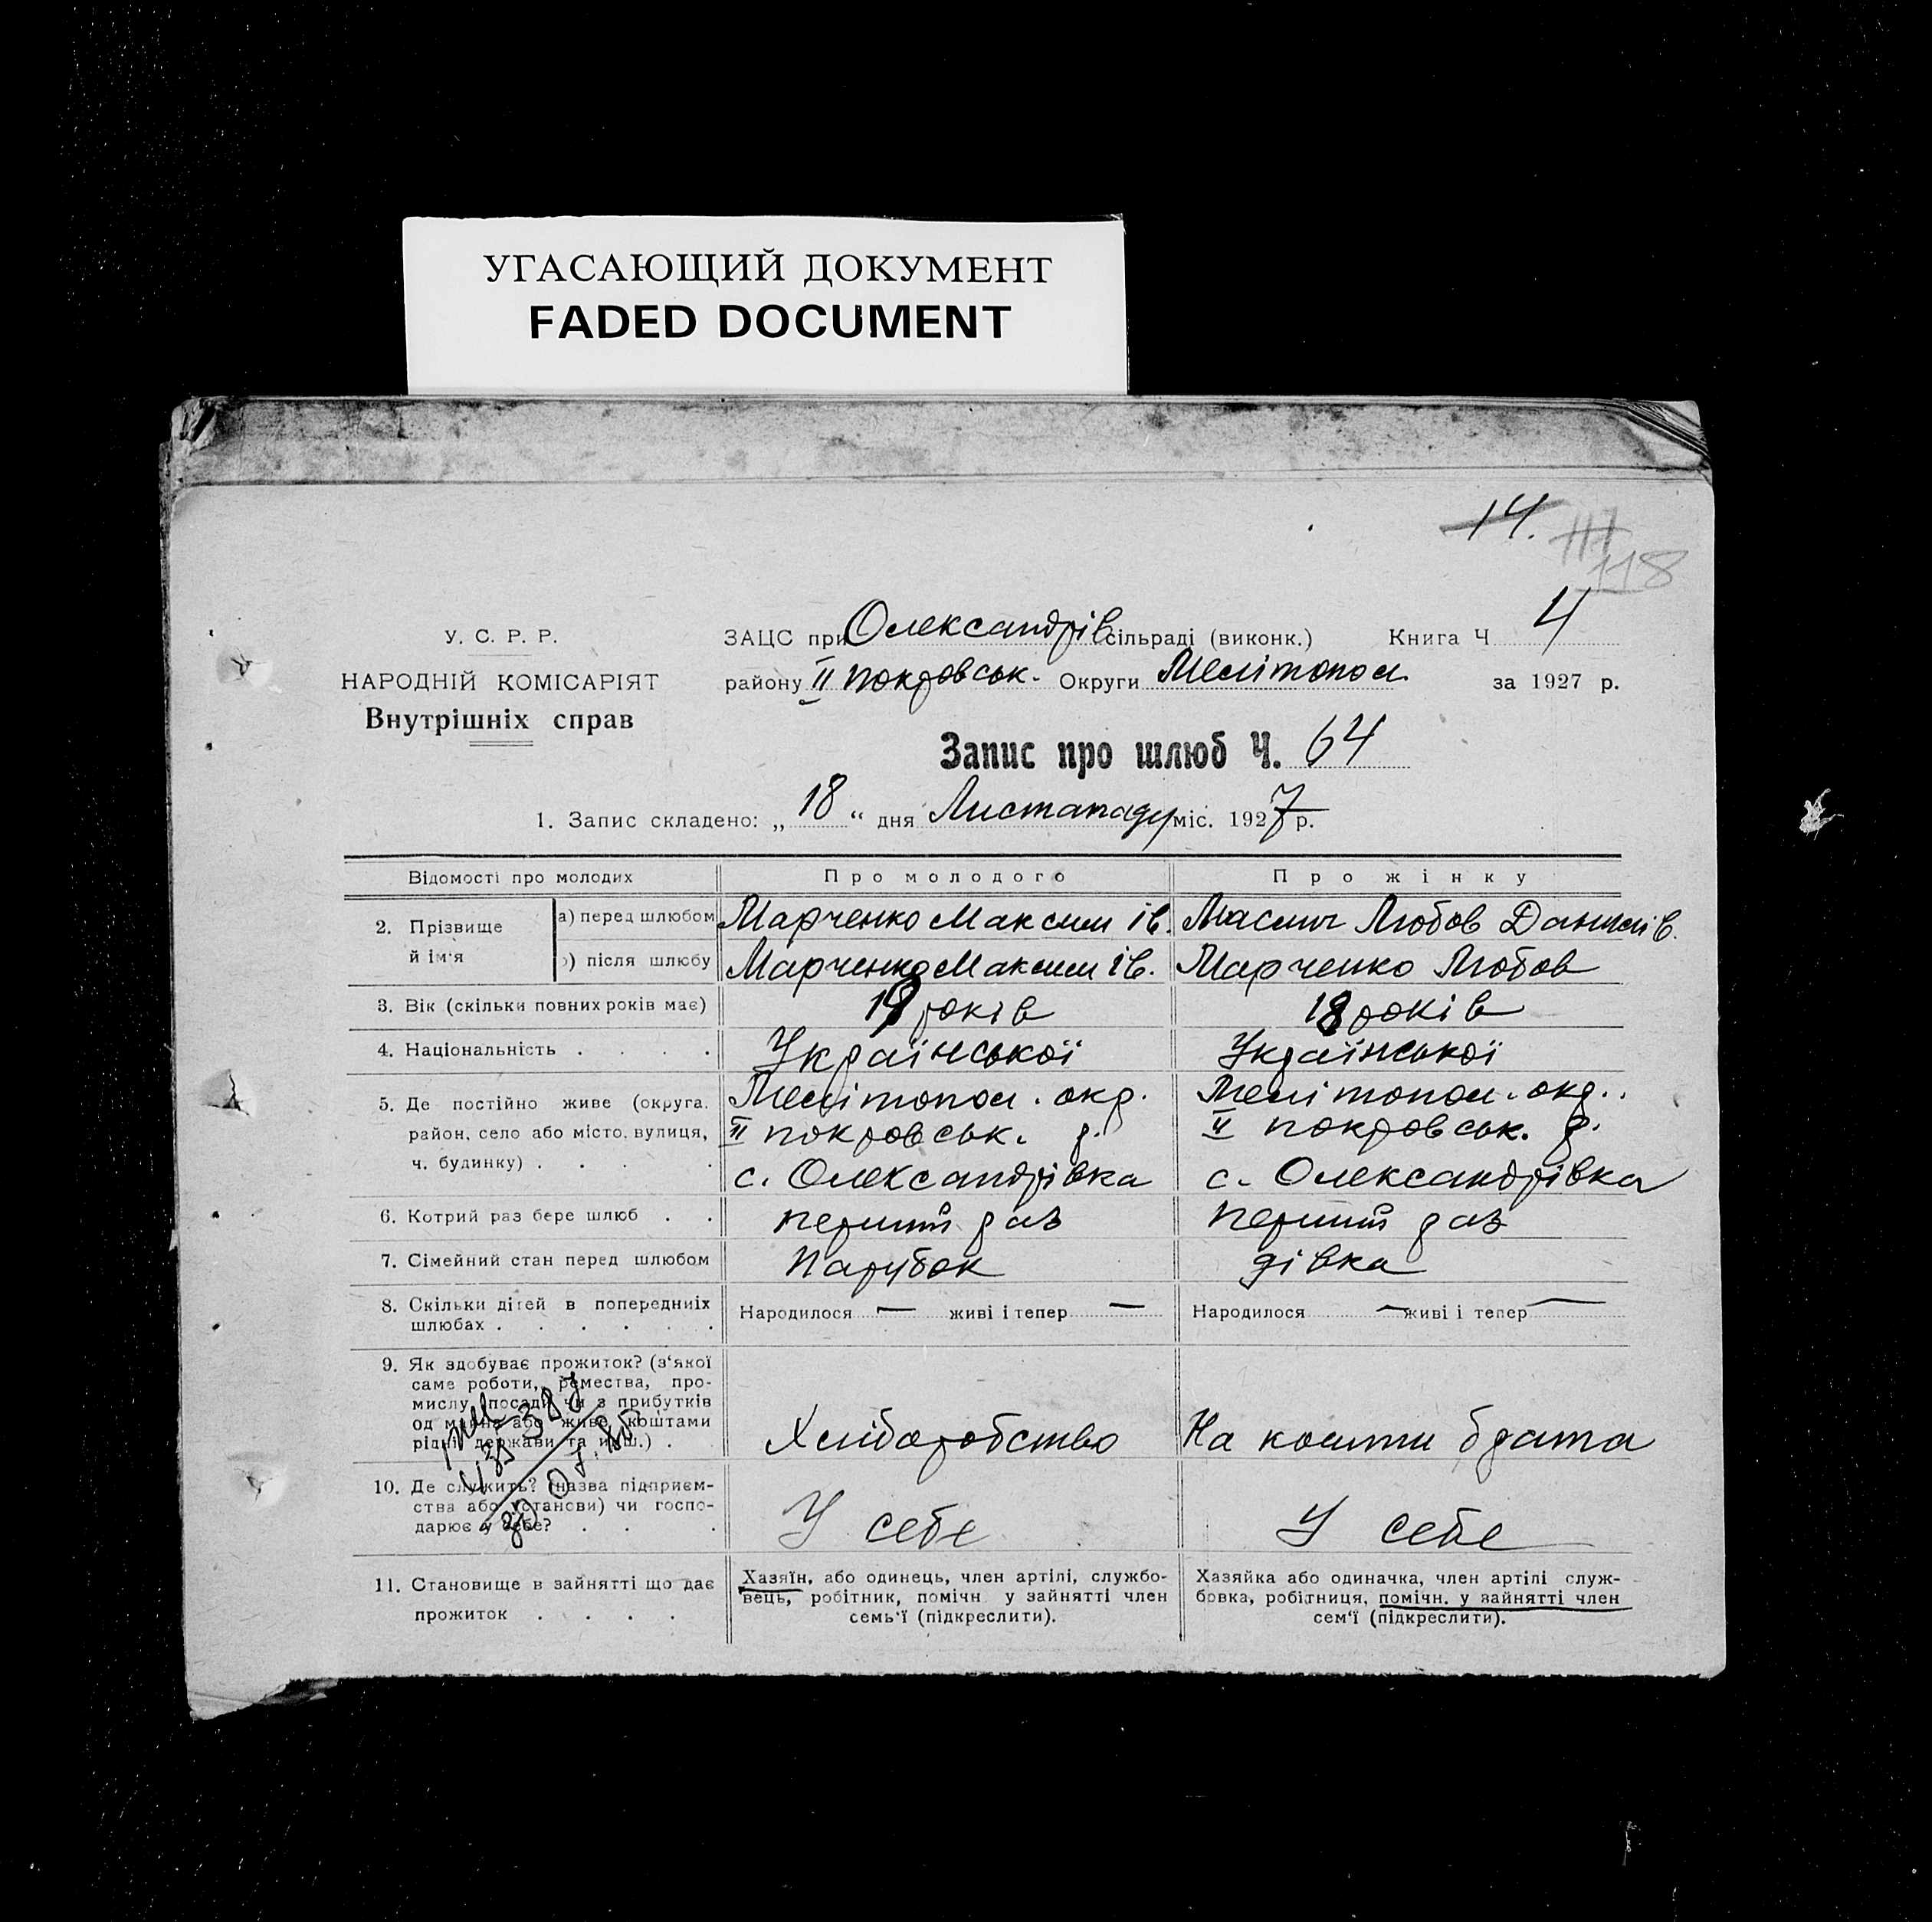 УГАСАЮЩИЙ ДОКУМЕНТ
FADED DOCUMENT
14.
117
118
У. С. Р. Р.
НАРОДНІЙ КОМІСАРІЯТ
Внутрішніх справ
ЗАЦС при Олександрів сільраді (виконк.) Книга Ч 4
району ІІ покровськ. Округи Мелітопол. за 1927 р.
Запис про шлюб Ч. 64
1. Запис складено: „ 18 “ дня Листападу міс. 1927 р.
Відомості про молодих Про молодого Про жінку
2. Прізвище й ім‘я
а) перед шлюбом Марченко Максим Ів. Любов Данилів.
б) після шлюбу Марченко Максим Ів. Марченко Любов
3. Вік (скільки повних років має) 19 років 18 років
4. Національність . . . . Української Української
5. Де постійно живе (округа, Мелітопол. окр. Мелітопол. окр.
район, село або місто, вулиця, ІІ покровськ. р. ІІ покровськ. р.
ч. будинку) . . . . с. Олександрівка с. Олександрівка
6. Котрий раз бере шлюб . . перший раз перший раз
7. Сімейний стан перед шлюбом Парубок дівка
8. Скільки дітей в попередниіх Народилося — живі і тепер — Народилося — живі і тепер —
шлюбах . . . . . .
9. Як здобуває прожиток? (з‘якої
саме роботи, ремества, про-
мислу, посади чи з прибутків
од майна або живе коштами
рідні держави та инш.) . Хліборобство На кошти брата
10. Де служить? (назва підприєм-
ства або установи) чи госпо-
дарює у себе? . . . У себе У себе
11. Становище в зайнятті що дає
прожиток . . . .
Хазяїн, або одинець, член артілі, службо-
вець, робітник, помічн у зайнятті член
семь‘ї (підкреслити).
Хазяйка або одиначка, член артілі служ-
бовка, робітниця, помічн. у зайнятті член
сем‘ї (підкреслити).